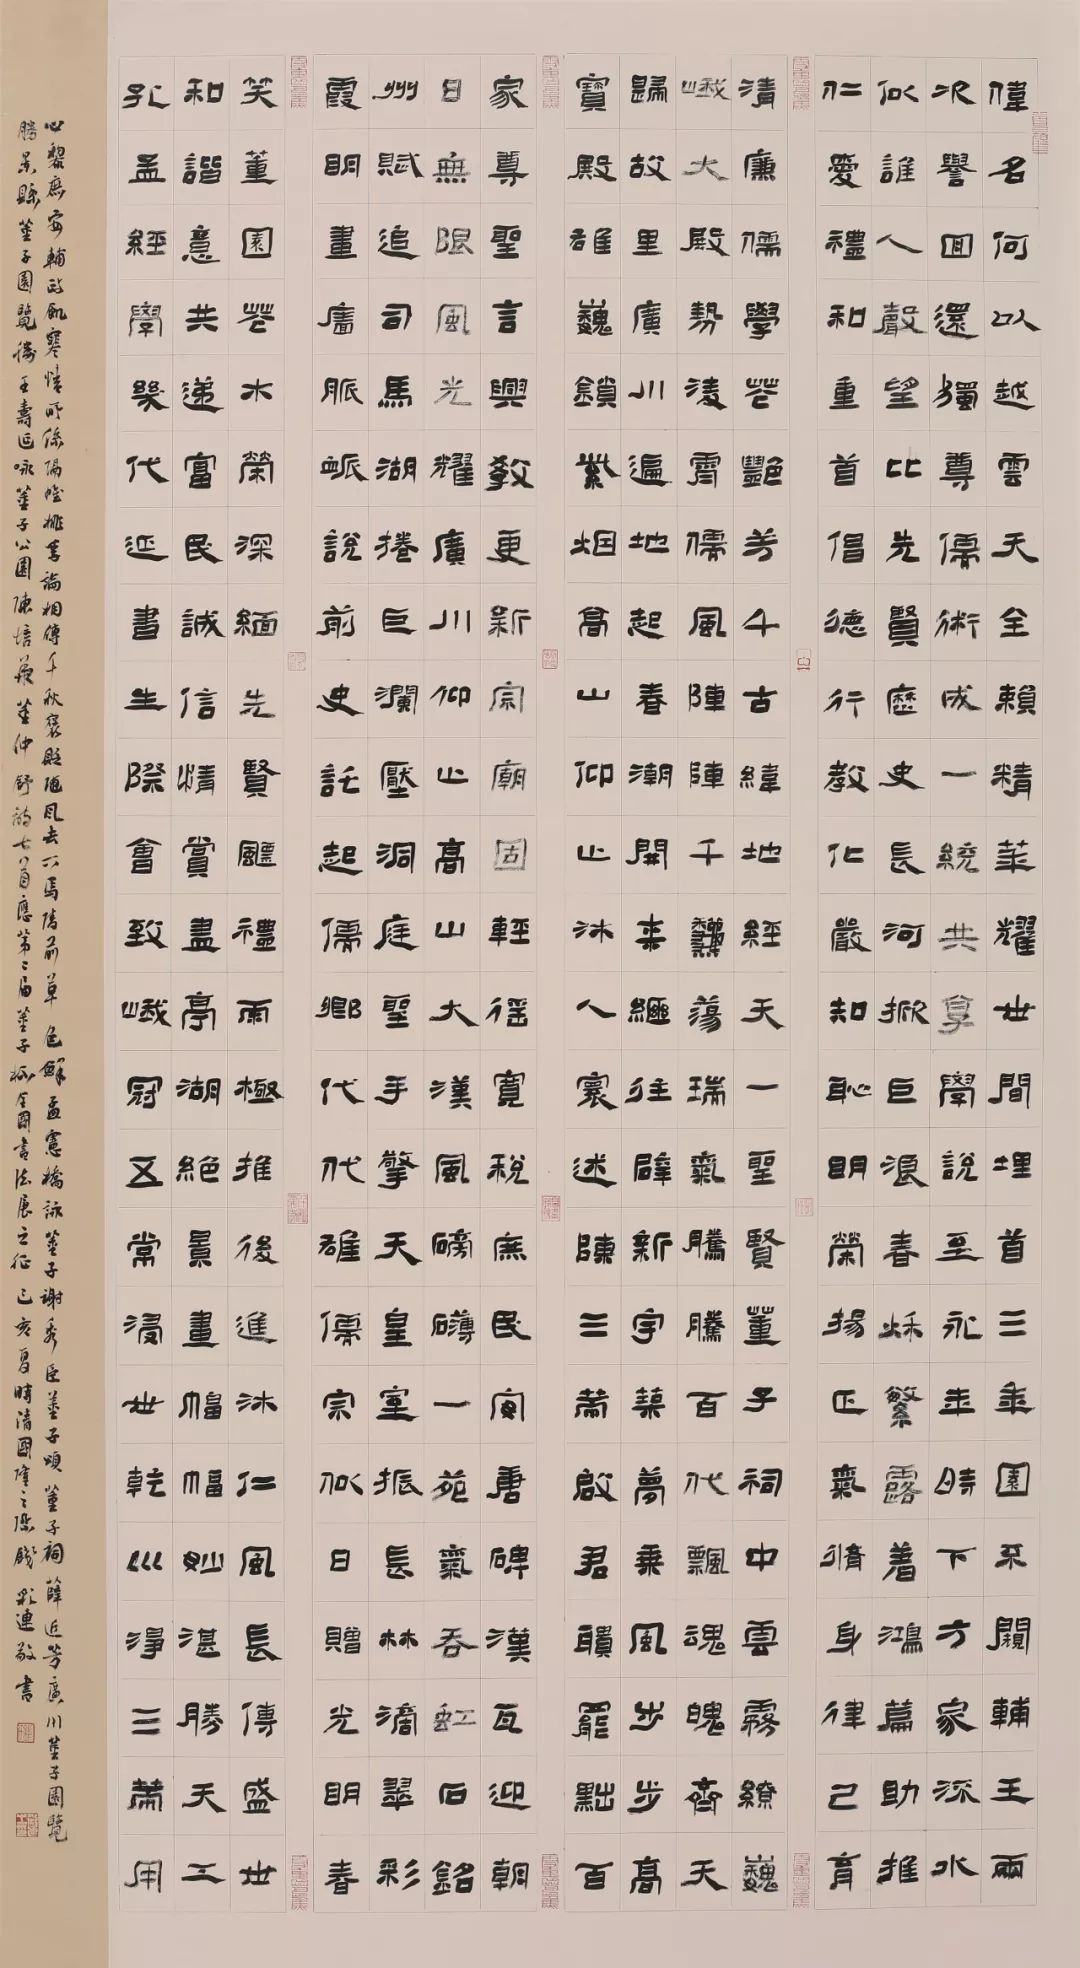 偉名何以越雲天全賴精萃耀世間埋首三年園不闚輔王兩
次譽回還獨尊儒術成一統共享學說至永年時下方家添水
似誰人聲望比先賢歷史長河掀巨浪春秋繁露着鴻篇助推
仁愛禮和重首倡德行教化嚴知恥明榮揚正氣脩身律己育
清廉儒學花艷芳千古緯地經天一聖賢董子祠中雲霧繚巍
峨大殿勢凌霄儒風陣陣千飄蕩瑞氣騰騰百代飄魂魄齊天
歸故里廣川遍地起春潮開來繼往辟新宇築夢乘風步步高
寶殿雄巍鎖紫烟高山仰止沐人寰述陳三策啟君聵罷黜百
家尊聖言興教更新宗廟固輕徭寬稅庶民安唐碑漢瓦迎朝
日無限風光耀廣川仰止高山大漢風磅礴一苑氣吞虹石銘
州賦追司馬湖捲巨瀾壓洞庭聖手擎天皇室振長林滴翠彩
霞明畫廬脈脈說前史託起儒鄉代代雄儒宗似日贈光明春
笑董園花木榮深緬先賢飄禮雨極推後進沐仁風長傳盛世
和諧意共遞富民誠信情賞盡亭湖絕景畫幅幅妙湛勝天工
孔孟經學幾代延書生際會致峨冠五常浸世乾川淨三策用
心黎庶安輔政飢寒情所係隔帷桃李論相傳千秋褒貶隨風去下馬陵前草色鮮 孟憲橋詠董子謝秀臣董子頌董子祠薛近芳廣川董子園覽
勝景縣董子園覽勝王壽正詠董子公園陳培岺董仲舒詩七首應第二届董子杯全國書法展之征 己亥夏時清國隆之際 彩連敬書